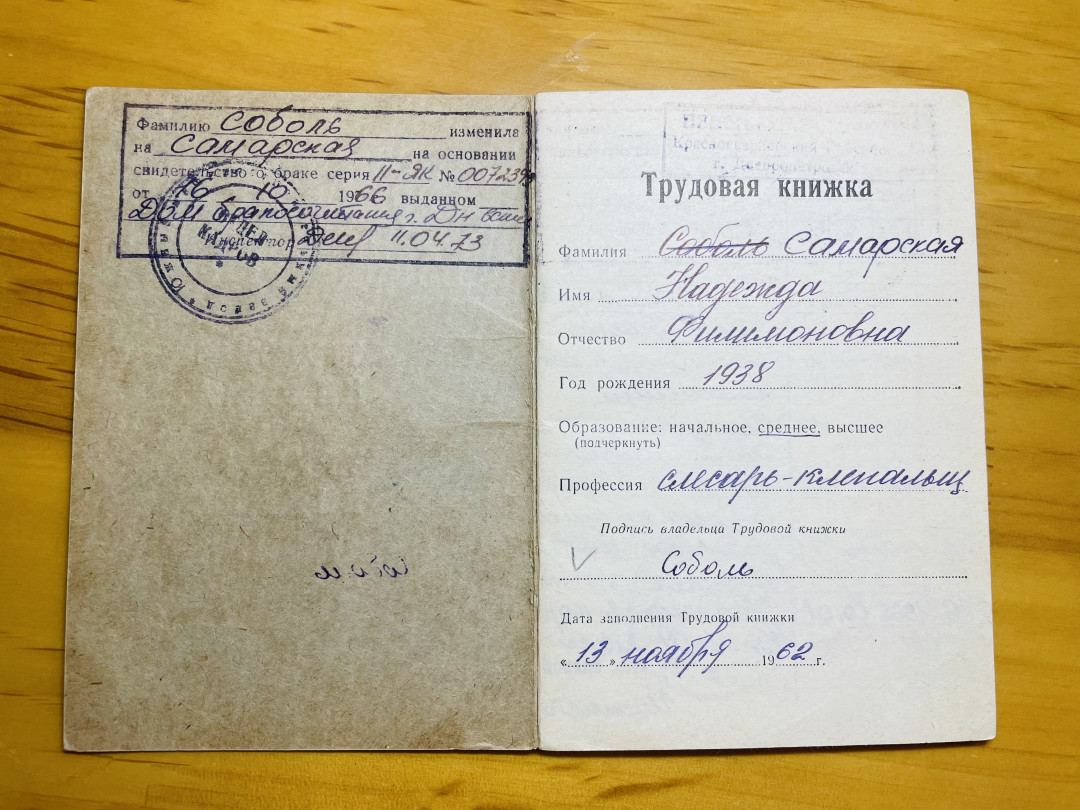 Фамилию Соболь изменила
на Самарская на основании
свидетельство о браке серия II-ЯК № 0072398
от 16 10 1966 выданном
Дом бракосочитания г. Дн
Инспектор 11.04.73
ОТДЕЛ
КАДРОВ
Южный завод
Красногвардейский
г. Днепропетровск
Трудовая книжка
Фамилия Соболь Самарская
Имя Надежда
Отчество Филимоновна
Год рождения 1938
Образование: начальное, среднее, высшее
(подчеркнуть)
Профессия слесарь-клепальщ
Подпись владельца Трудовой книжки
V Соболь
Дата заполнения Трудовой книжки
«13» ноября 1962 г.